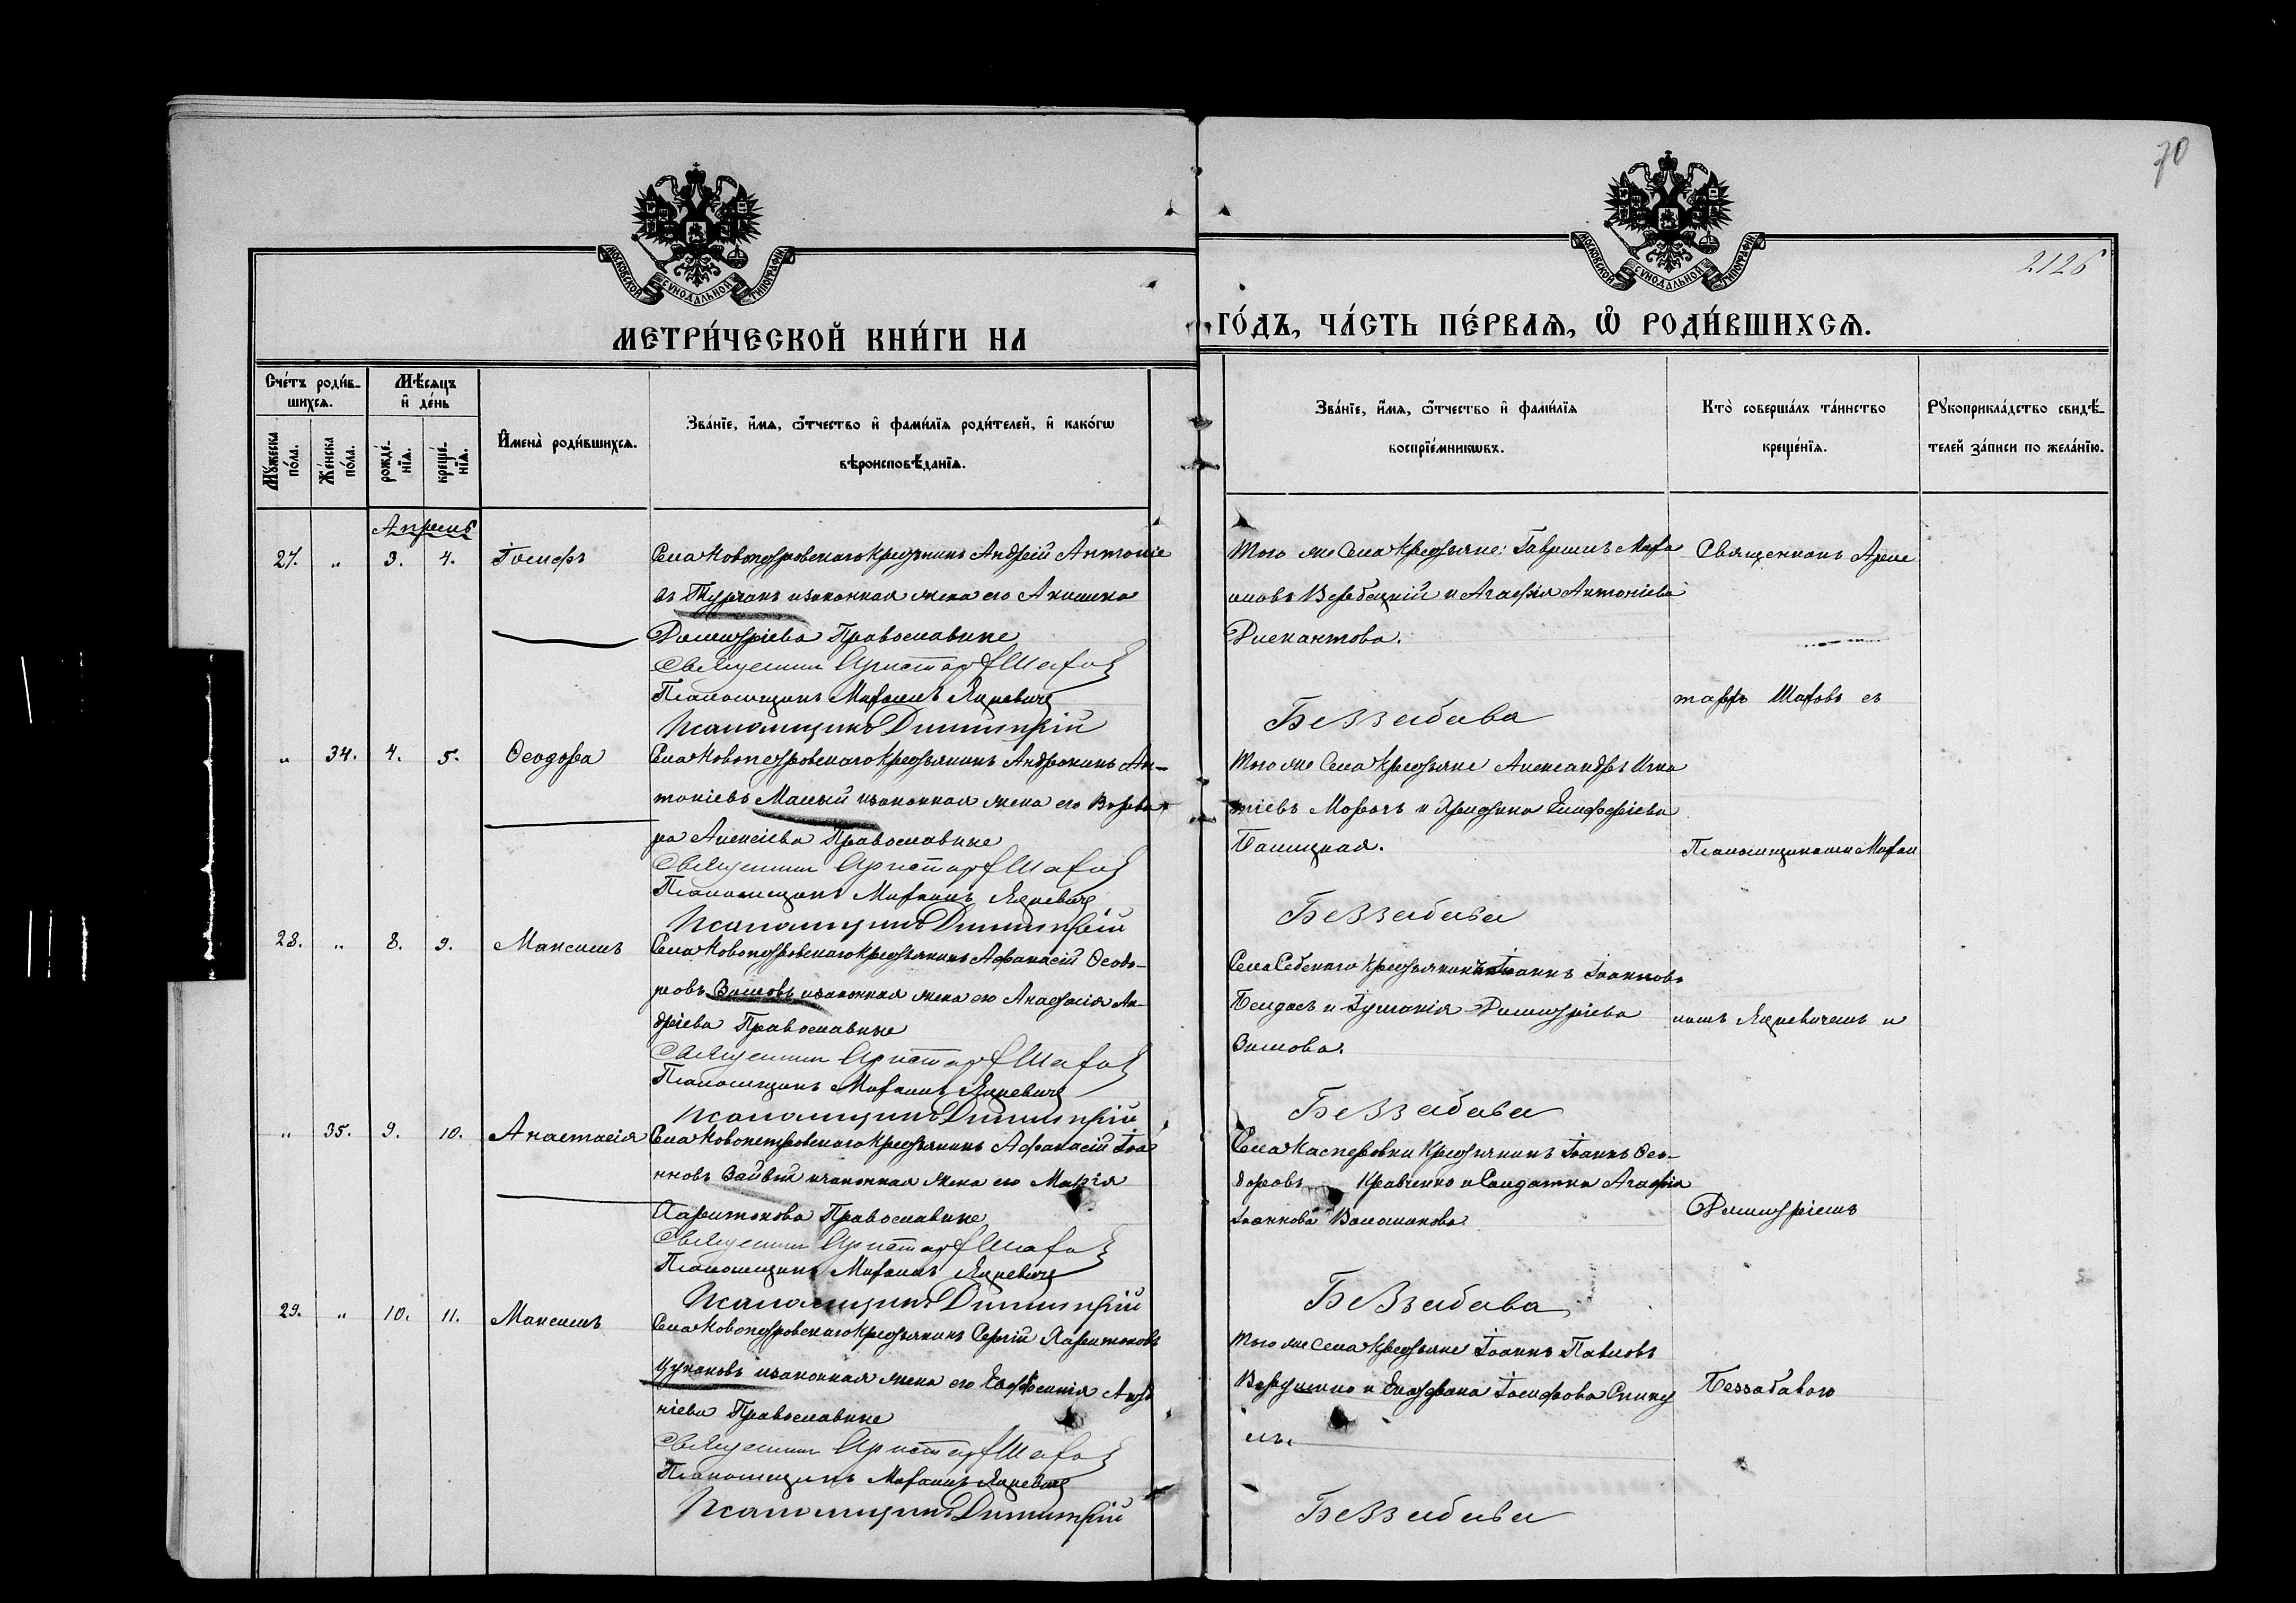 70
2126
МОСКОВСКОЙ СУНОДАЛЬНОЙ ТИПОГРАФІИ
МОСКОВСКОЙ СУНОДАЛЬНОЙ ТИПОГРАФІИ
МЕТРИ́ЧЕСКОЙ КНИ́ГИ НА
ГО́ДЪ, ЧА́СТЬ ПЕ́РВАѦ, Ѡ҆ РОДИ́ВШИХСѦ.
Сче́тъ роди́в-
шихсѧ.
Мѣ́сѧцъ
и҆ де́нь
Мꙋ́жеска
по́ла.
Же́нска
по́ла.
рожде́-
нїѧ.
креще́-
нїѧ.
И҆мена̀ роди́вшихсѧ.
Зва́нїе, и҆́мѧ, ѻ҆́тчество и҆ фами́лїѧ роди́телей, и҆ како́гѡ
вѣроисповѣ́данїѧ.
Зва́нїе, и҆́мѧ, ѻ҆́тчество и҆ фами́лїѧ
воспрїе́мникѡвъ.
Кто̀ соверша́лъ та́инство
креще́нїѧ.
Рꙋкоприкла́дство свидѣ́-
телей за́писи по жела́нїю.
Апрель
27. " 3. 4. Іосифъ
Села Новопетровскаго Крестьянинъ Андрей Антоніе
въ Турчанъ изаконная жена его Акилина
Димитріева Православные
Священникъ Аристархъ Шаховъ
Псаломщикъ Михаилъ Яцкевичъ
Псаломщикъ Димитрій
Того же Села Крестьяне: Гавриилъ Миха
иловъ Вербецкій и Агафія Антоніева
Дискантова.
Беззабава
Священникъ Арис
тархъ Шаховъ съ
" 34. 4. 5. Ѳеодора
Села Новопетровскаго Крестьянинъ Андроникъ Ан-
тоніевъ Малый изаконная жена его Варва
ра Алексіева Православные
Священникъ Аристархъ Шаховъ
Псаломщикъ Михаилъ Яцкевичъ
Псаломщикъ Димитрій
Того же Села Крестьяне Александръ Игна
тіевъ Морозъ и Христина Елифѳеріева
Палицкая.
Беззабава
Псаломщиками Михаи
28. " 8. 9. Максимъ
Села Новопетровскаго Крестьянинъ Аѳанасій Ѳеодо-
ровъ Зимовъ изаконная жена его Анастасія Ан-
дреева Православные
Священникъ Аристархъ Шаховъ
Псаломщикъ Михаилъ Яцкевичъ
Псаломщикъ Димитрій
Села Себскаго Крестьянинъ Іоаннъ Іоанновъ
и Іуліанія Димитріева
Зимова.
Беззабава
ломъ Яцкевичемъ и
" 35. 9. 10. Анастасія
Села Новопетровскаго Крестьянинъ Аѳанасій Іоа
нновъ Зайвый изаконная жена его Марія
Харитонова Православные
Священникъ Аристархъ Шаховъ
Псаломщикъ Михаилъ Яцкевичъ
Псаломщикъ Димитрій
Села Касперовки Крестьянинъ Іоаннъ Ѳео-
доровъ Кравченко и Солдатка Агафія
Іоаннова Волошинова.
Беззабава
Димитріемъ
29. " 10. 11. Максимъ
Села Новопетровскаго Крестьянинъ Сергій Харитоновъ
Цукановъ изаконная жена его Евфимія
Православные
Священникъ Аристархъ Шаховъ
Псаломщикъ Михаилъ Яцкевичъ
Псаломщикъ Димитрій
Того же Села Крестьяне Іоаннъ Павловъ
и Іосифова
Беззабава
Беззабавою